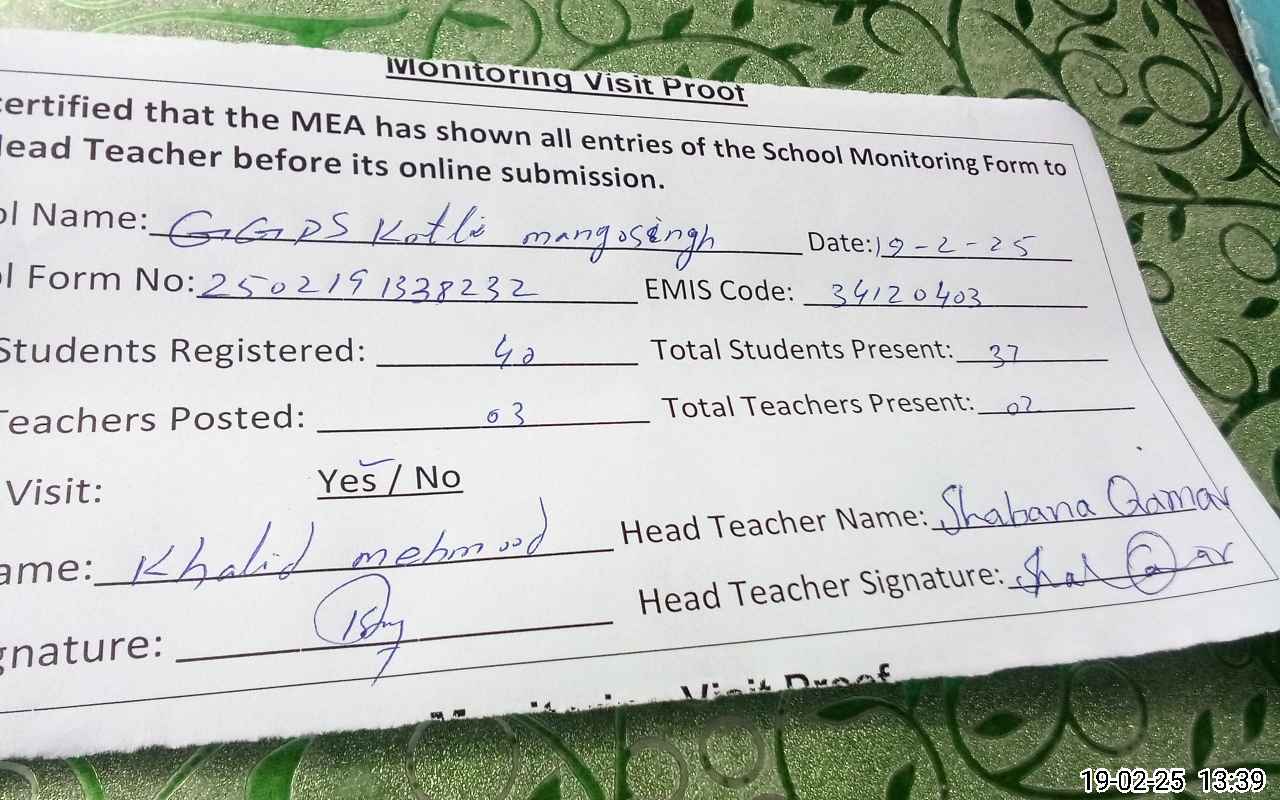 Monitoring Visit Proof
certified that the MEA has shown all entries of the School Monitoring Form to
Head Teacher before its online submission.
ol Name: GGPS Kotli mangosingh Date: 19-2-25
ol Form No: 2502191338232 EMIS Code: 34120403
Students Registered: 40 Total Students Present: 37
Teachers Posted: 03 Total Teachers Present: 02
Visit: Yes / No
ame: Khalid mehmood Head Teacher Name: Shabana Qamar
gnature: Head Teacher Signature:
Monitoring Visit Proof
19-02-25 13:39